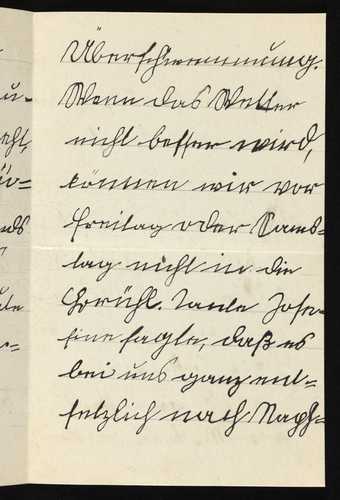 Überschwemmung.
Wenn das Wetter
nicht besser wird,
können wir vor
Freitag oder Sams-
tag nicht in die
Tante Jose-
fine sagte, daß es
bei uns ganz ent-
setzlich nach Naph-